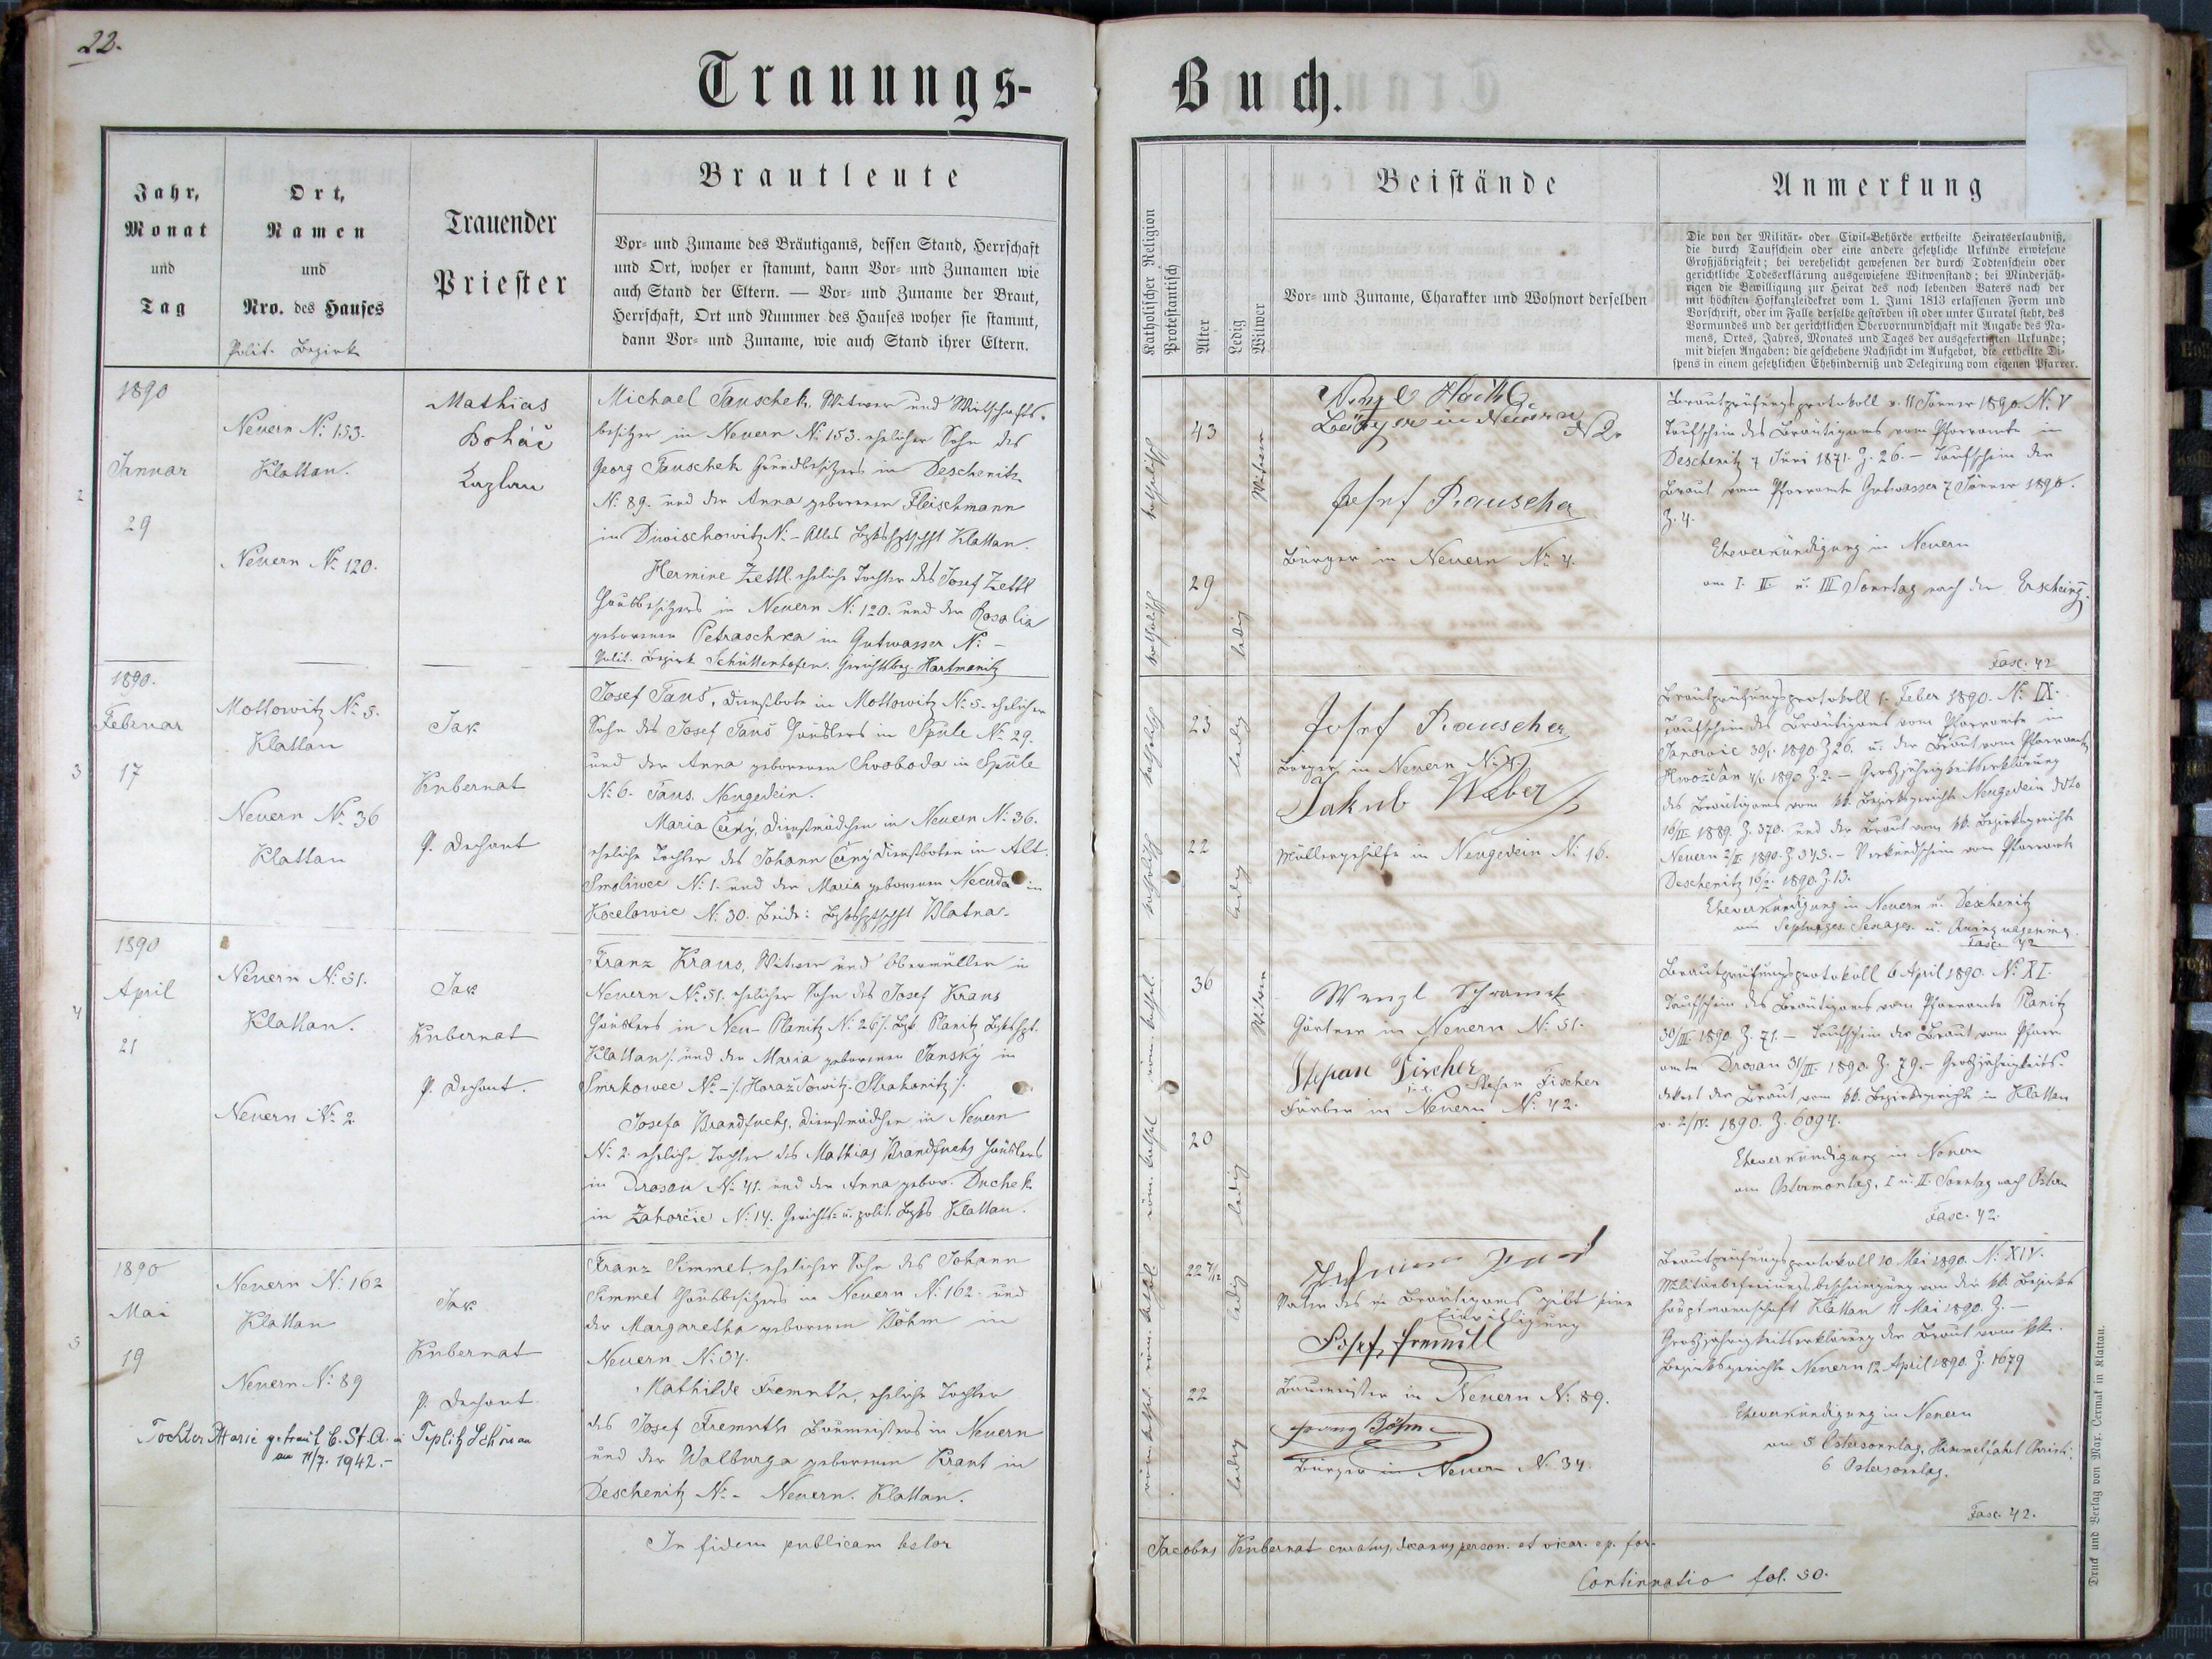 22.
Trauungs-
Buch.
Jahr,
Monat
und
Tag
Ort,
Namen
und
Nro. des Hauses
Polit. Bezirk
Trauender
Priester
Brautleute
Vor- und Zuname des Bräutigams, dessen Stand, Herrschaft
und Ort, woher er stammt, dann Vor- und Zunamen wie
auch Stand der Eltern. — Vor- und Zuname der Braut,
Herrschaft, Ort und Nummer des Hauses woher sie stammt,
dann Vor- und Zuname, wie auch Stand ihrer Eltern.
Katholischer Religion
Protestantisch
Alter
Ledig
Witwer
Beistände
Vor- und Zuname, Charakter und Wohnort derselben
Anmerkung
Die von der Militär- oder Civil-Behörde ertheilte Heiratserlaubniß,
die durch Taufschein oder eine andere gesetzliche Urkunde erwiesene
Großjährigkeit; bei verehelicht gewesenen der durch Todtenschein oder
gerichtliche Todeserklärung ausgewiesene Witwenstand; bei Minderjäh-
rigen die Bewilligung zur Heirat des noch lebenden Vaters nach der
mit höchsten Hofkanzleidekret vom 1. Juni 1813 erlassenen Form und
Vorschrift, oder im Falle derselbe gestorben ist oder unter Curatel steht, des
Vormundes und der gerichtlichen Obervormundschaft mit Angabe des Na-
mens, Ortes, Jahres, Monates und Tages der ausgefertigten Urkunde;
mit diesen Angaben: die geschehene Nachsicht im Aufgebot, die ertheilte Di-
spens in einem gesetzlichen Ehehinderniß und Delegirung vom eigenen Pfarrer.
2
1890
Januar
29
Neuern N: 153.
Klattau.
Neuern N: 120.
Mathias
Boháč
Kaplan
Michael Tauschek, Witwer und Wirtschafts-
besitzer in Neuern N: 153. ehelicher Sohn des
Georg Tauschek Grundbesitzers in Deschenitz
N: 89. und der Anna geborenen Fleischmann
in Diwischowitz N: - Alles Bzkshptschft Klattau.
Hermine Zettl. eheliche Tochter des Josef Zettl
Hausbesitzers in Neuern N: 120. und der Rosalia
geborenen Petraschka in Gutwasser N: -
Polit. Bezirk Schüttenhofen. Gerichtsbez. Hartmanitz
katholisch
43
Witwer
katholisch
29
ledig
Bürger in Neuern N 2.
Josef Rauscher
Bürger in Neuern N: 4.
Brautprüfungsprotokoll v. 11 Jänner 1890. N: V
Taufschein des Bräutigams vom Pfarramte in
Deschenitz 7 Juni 1871. Z. 26. - Taufschein der
Braut vom Pfarramte Gutwasser 7 Jänner 1890.
Z. 4.
Eheverkündigung in Neuern
am I. II. u. III Sonntag nach der Erscheing.
Fasc. 42
3
1890.
Februar
17
Mottowitz N: 5.
Klattau
Neuern N: 36
Klattau
Jak
Kubernat
P. Dechant
Josef Tauš, Dienstbote in Mottowitz N: 5. ehelicher
Sohn des Josef Tauš Häuslers in Spule N: 29.
und der Anna geborenen Svoboda in Spule
N: 6. Taus. Neugedein.
Maria Černý, Dienstmädchen in Neuern N: 36.
eheliche Tochter des Johann Černý Dienstboten in Alt-
Smoliwec N: 1. und der Maria geborenen Necuda in
Kocelowic N: 30. Beide: Bzkshptschft Blatna.
katholisch
23
ledig
katholisch
22
ledig
Josef Rauscher
Bürger in Neuern N: 4.
Jakub Weber
Müllergehilfe in Neugedein N: 16.
Brautprüfungsprotokoll 1. Feber 1890. N: IX.
Taufschein des Bräutigams vom Pfarramte in
Janowic 30/1. 1890. Z 26. u. der Braut vom Pfarramte
Hwoždan 4/1. 1890. Z. 2. - Großjährigkeitserklärung
des Bräutigams vom kk. Bezirksgerichte Neugedein ddto
16/II 1889. Z. 370. und der Braut vom kk. Bezirksgerichte
Neuern 2/II. 1890. Z 345. - Verkündschein vom Pfarramte
Deschenitz 16/2. 1890. Z. 13.
Eheverkündigung in Neuern u. Deschenitz
am Septuages. Sexages. u. Quinquagesima.
Fasc. 42
4
1890
April
21
Neuern N: 51.
Klattau.
Neuern N: 2
Jak
Kubernat
P. Dechant.
Franz Kraus, Witwer und Obermüller in
Neuern N: 51. ehelicher Sohn des Josef Kraus
Häuslers in Neu-Planitz N: 26/. Bzk. Planitz Bzkshpt.
Klattau/. und der Maria geborenen Janský in
Smrkowec N: -/. Horažďowitz. Strakonitz/.
Josefa Brandfuchs, Dienstmädchen in Neuern
N: 2. eheliche Tochter des Mathias Brandfuchs Häuslers
in Drosau N: 41. und der Anna gebor. Duchek
in Zahorčic N: 14. Gerichts- u. polit. Bzks Klattau.
röm. kathol.
36
Witwer
röm. kathol
20
ledig
Wenzl Schramek
Gärtner in Neuern N: 51.
Stepan Fischer
Stefan Fischer
Färber in Neuern N: 42.
Brautprüfungsprotokoll 6 April 1890. N: XI.
Taufschein des Bräutigams vom Pfarramte Planitz
30/III. 1890. Z. 71. - Taufschein der Braut vom Pfarr-
amte Drosau 31/III. 1890. Z. 79. - Großjährigkeits-
dekret der Braut vom kk. Bezirksgerichte in Klattau
v. 2/IV. 1890. Z. 6094.
Eheverkündigung in Neuern
am Ostermontag, I u. II. Sonntag nach Ostern
Fasc. 42.
5
1890
Mai
19
Neuern N: 162
Klattau
Neuern N: 89
Jak
Kubernat
P. Dechant.
Franz Simmet, ehelicher Sohn des Johann
Simmet Hausbesitzers in Neuern N: 162. und
der Margaretha geborenen Böhm in
Neuern N: 34.
Mathilde Fremuth, eheliche Tochter
des Josef Fremuth Baumeisters in Neuern
und der Walburga geborenen Kraut in
Deschenitz N: - Neuern. Klattau.
Tochter Marie getraut b. St. A. in Teplitz Schönau
am 11/7. 1942. -
röm. kathol.
22 7/12
ledig
röm. kathol.
22
ledig
Vater des Bräutigams gibt seine
Einwilligung
Josef Fremuth
Baumeister in Neuern N: 89.
Franz Böhm
Bürger in Neuern N: 34.
Brautprüfungsprotokoll 10 Mai 1890. N: XIV.
Militärbefreiungsbescheinigung von der kk. Bezirks
hauptmannschaft Klattau 11 Mai 1890. Z. -
Großjährigkeitserklärung der Braut vom kk.
Bezirksgerichte Neuern 12 April 1890. Z. 1679
Eheverkündigung in Neuern
am 5 Ostersonntag, Himmelfahrt Christi,
6 Ostersonntag.
Fasc. 42.
In fidem publicam testor
Jacobus Kubernat curatus, decanus person. et vicar. ep. for.
Continuatio fol. 50.
Druck und Verlag von Max. Čermak in Klattau.